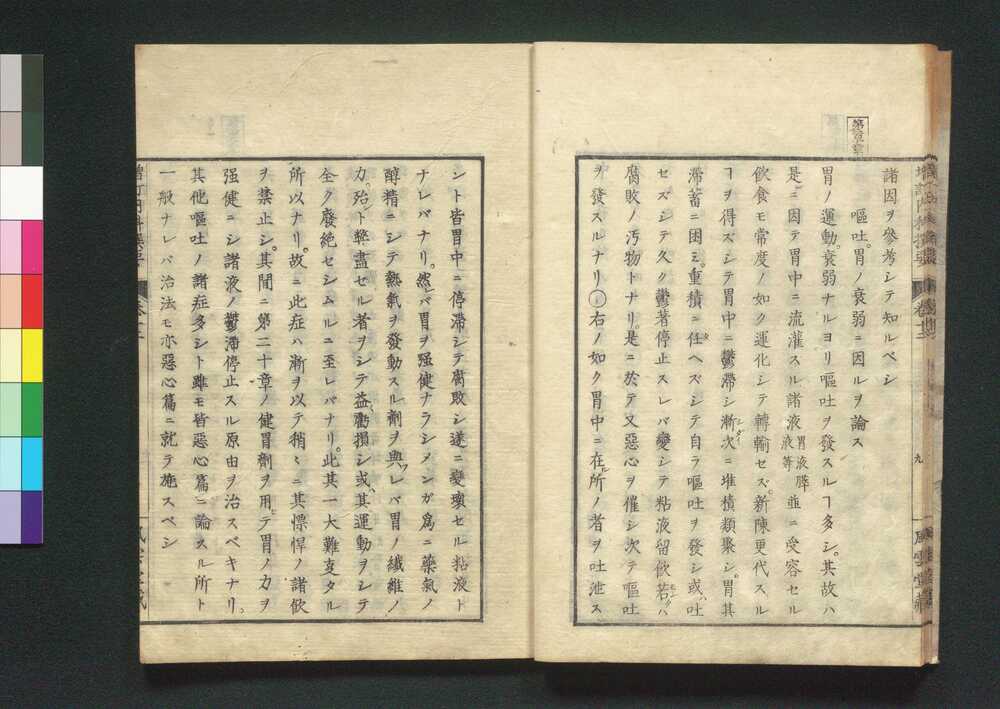 諸因ヲ參考シテ知ルベシ
嘔吐。胃ノ衰弱ニ因ルヲ論ス
胃ノ運動。衰弱ナルヨリ嘔吐ヲ發スルヿ多シ。其故ハ
是ニ因テ胃中ニ流灌スル諸液胃液膵液等並ニ受容セル
飲食モ常度ノ如ク運化シテ轉輸セズ。新陳更代スル
ヿヲ得ズシテ胃中ニ鬱滯シ漸次ニ堆積類聚シ。胃其
滯蓄ニ困ミ。重積ニ任ヘズシテ自ラ嘔吐ヲ發シ或ハ吐
セズシテ久ク鬱著停止スレバ變シテ粘液留飲若クハ
腐敗ノ汚物トナリ。是ニ於テ又惡心ヲ催シ次テ嘔吐
ヲ發スルナリ○右ノ如ク胃中ニ在所ノ者ヲ吐泄ス
九
風雲堂藏
シト皆胃中ニ停滯シテ腐敗シ遂ニ變壞セル粘液ト
ナレバナリ。然レバ胃ヲ强健ナラシメンガ爲ニ藥氣ノ
醇精ニシテ熱氣ヲ發動スル劑ヲ與フレバ胃ノ纖維ノ
力。殆ント輟盡セル者ヲシテ益虧損シ或ハ其運動ヲシテ
全ク廢絶セシムルニ至レバナリ。此其一大難支タル
所以ナリ。故ニ此症ハ漸ヲ以テ稍々ニ其慓悍ノ諸飲
ヲ禁止シ。其間ニ第二十章ノ健胃劑ヲ用テ胃ノ力ヲ
强健ニシ諸液ノ鬱滯停止スル原由ヲ治スベキナリ。
其他嘔吐ノ諸症多シト雖モ皆惡心篇ニ論スル所ト
一般ナレバ治法モ亦惡心篇ニ就テ施スベシ